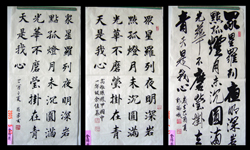 眾星羅列夜明深岩
點孤燈月未沉圓滿
光華不磨瑩掛在
青天是我心
眾星羅列夜明深岩
點孤燈月未沉圓滿
光華不磨瑩掛在青
天是我心
眾星羅列夜明深岩
點孤燈月未沉圓滿
光華不磨瑩掛在青
天是我心